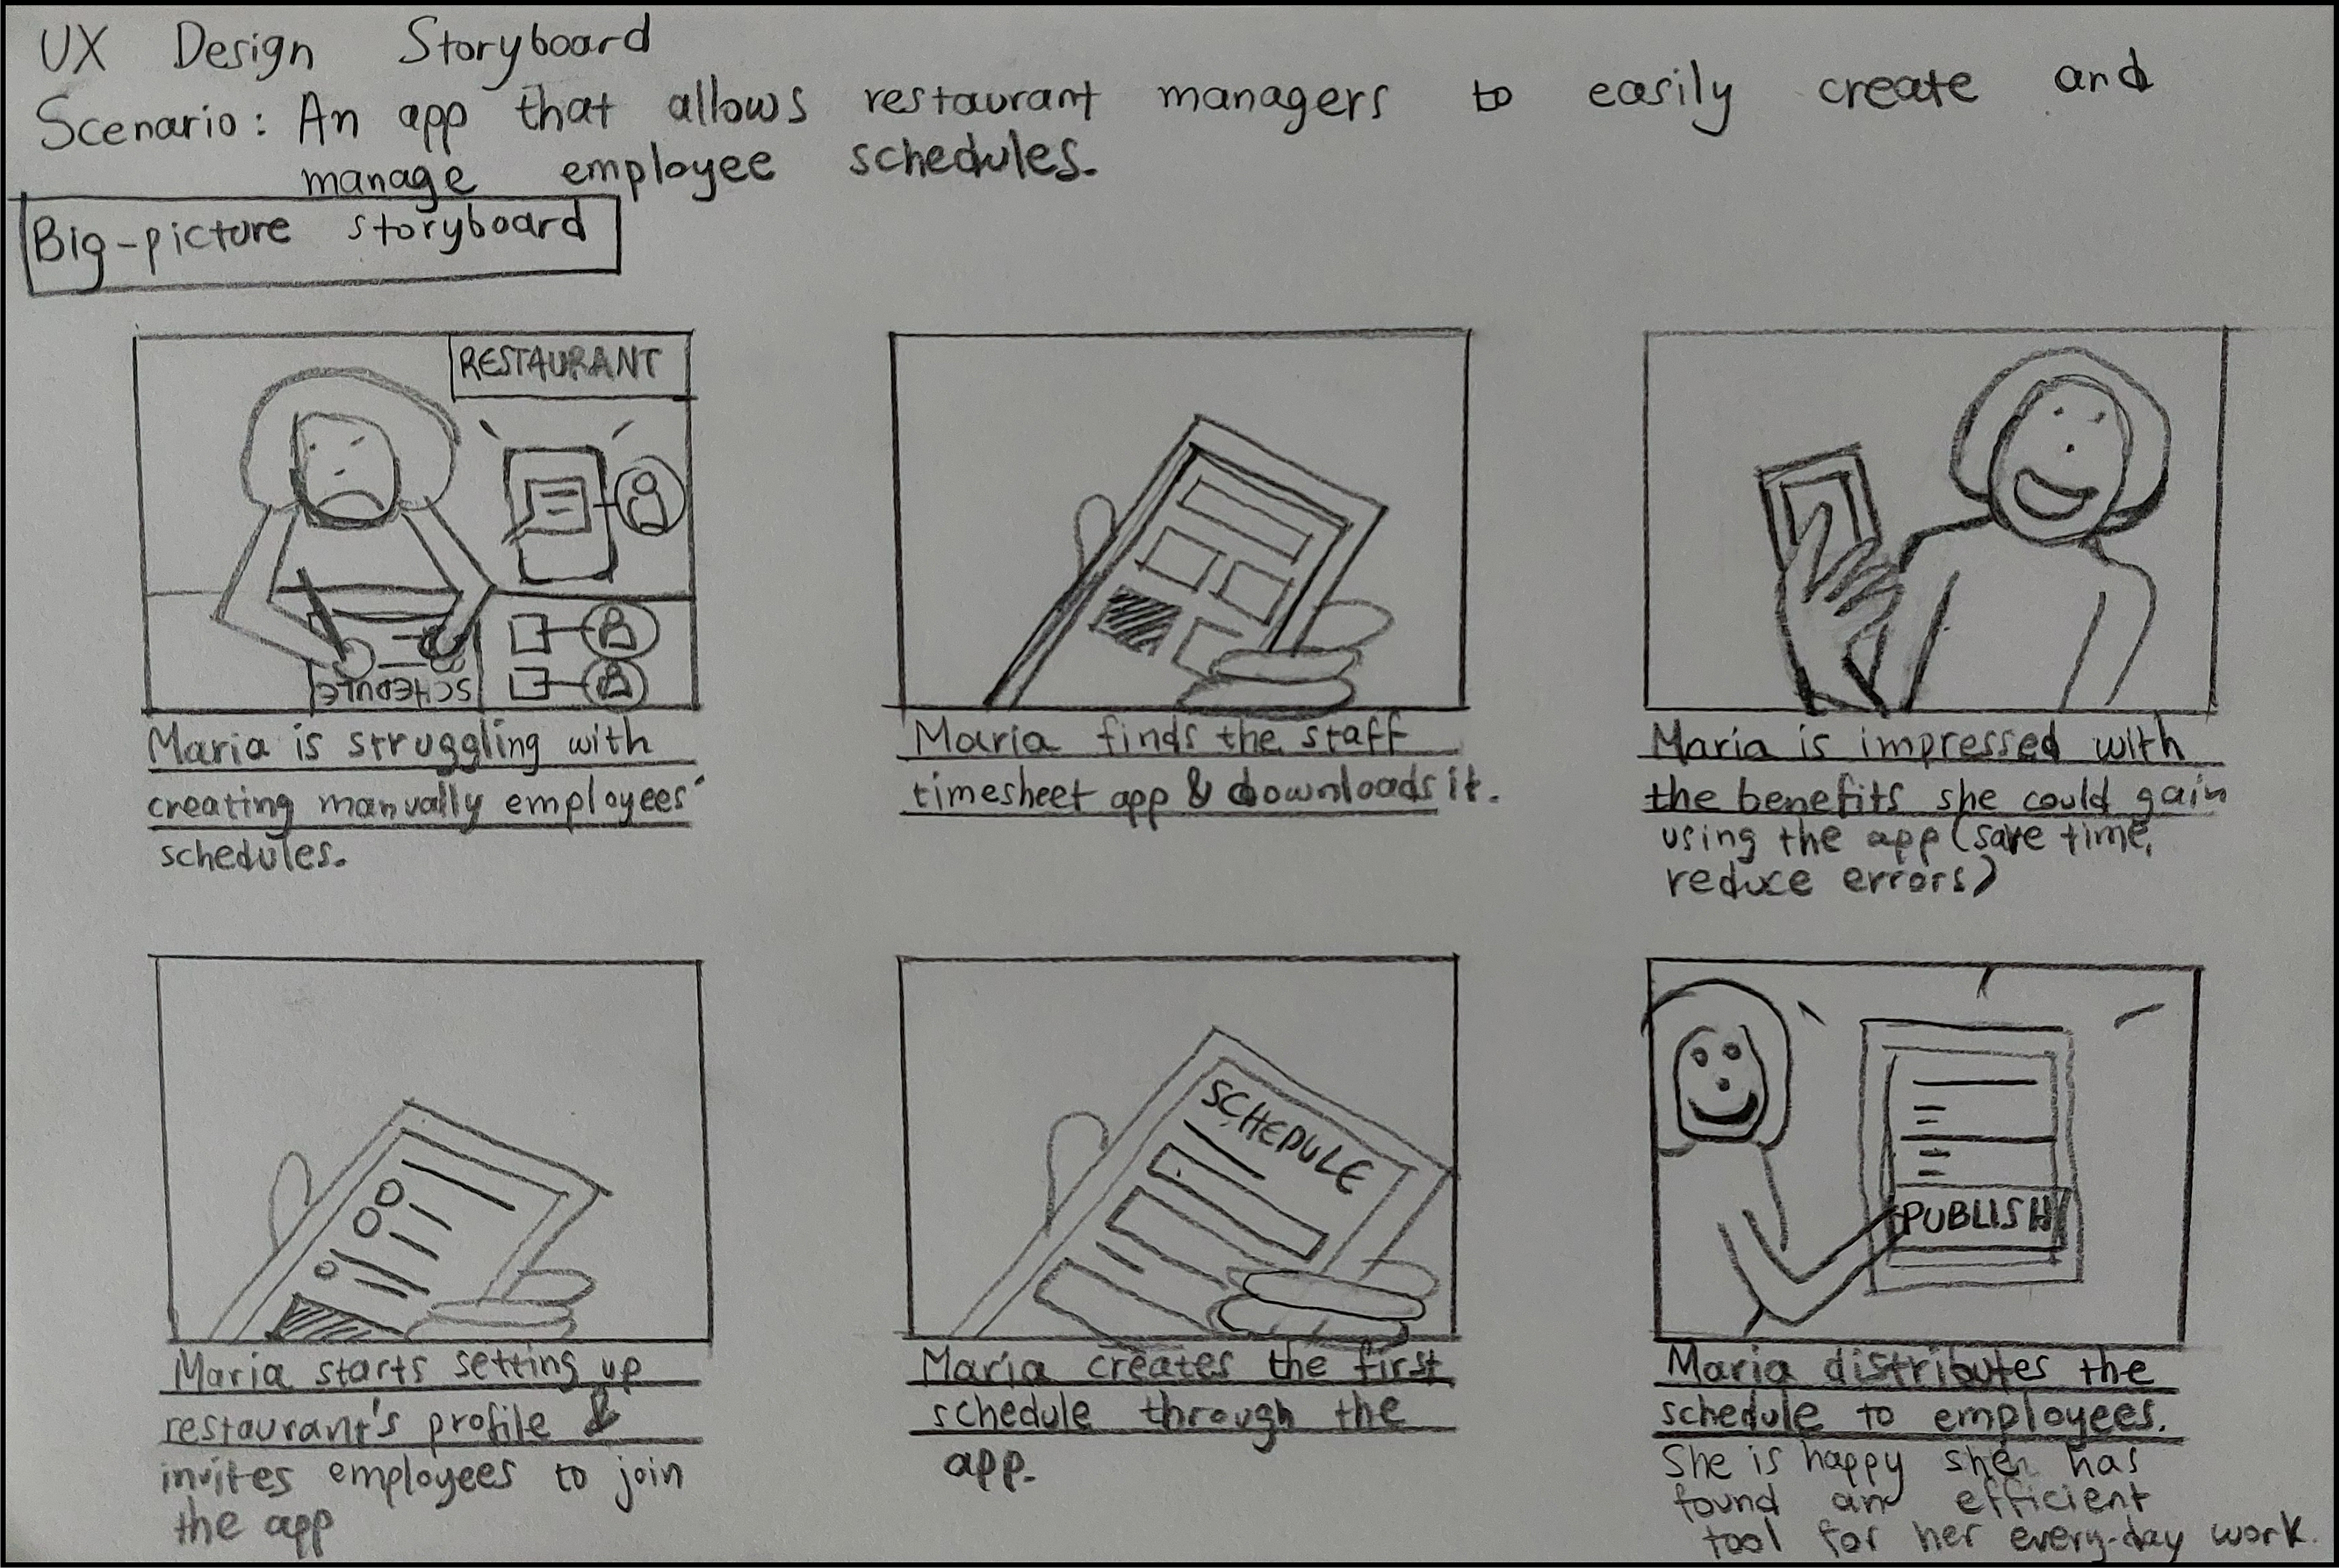 UX Design Storyboard
Scenario: An app that allows restaurant managers to easily create and
manage employee schedules.
Big-picture storyboard
RESTAURANT
SCHEDULE
Maria is struggling with
creating manually employees'
schedules.
Maria finds the staff
timesheet app & downloads it.
Maria is impressed with
the benefits she could gain
using the app (save time,
reduce errors)
Maria starts setting up
restaurant's profile &
invites employees to join
the app
SCHEDULE
Maria creates the first
schedule through the
app.
PUBLISH
Maria distributes the
schedule to employees.
She is happy she has
found an efficient
tool for her every-day work.